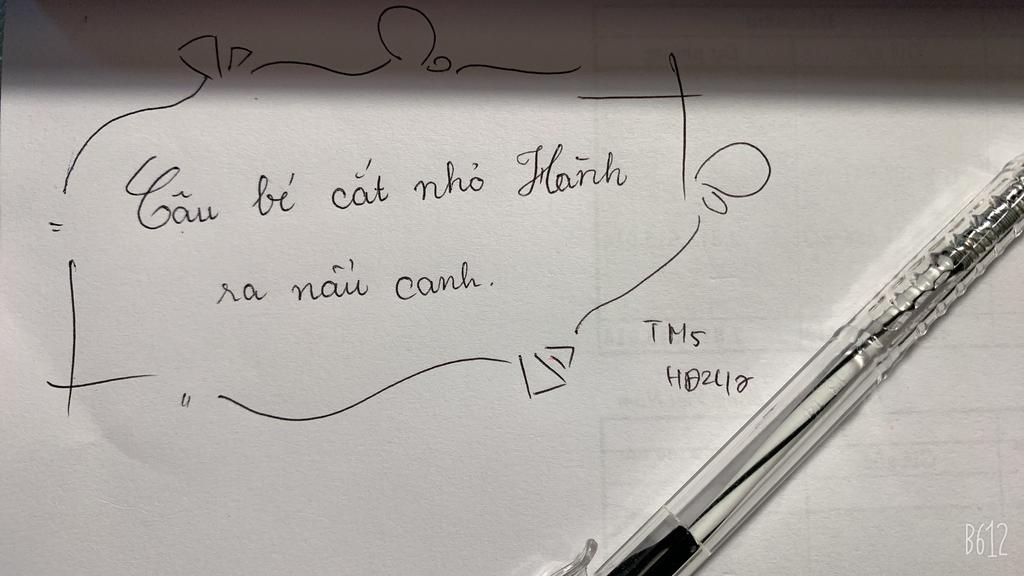 Cậu bé cắt nhỏ Hành
ra nấu canh.
TM5
B612